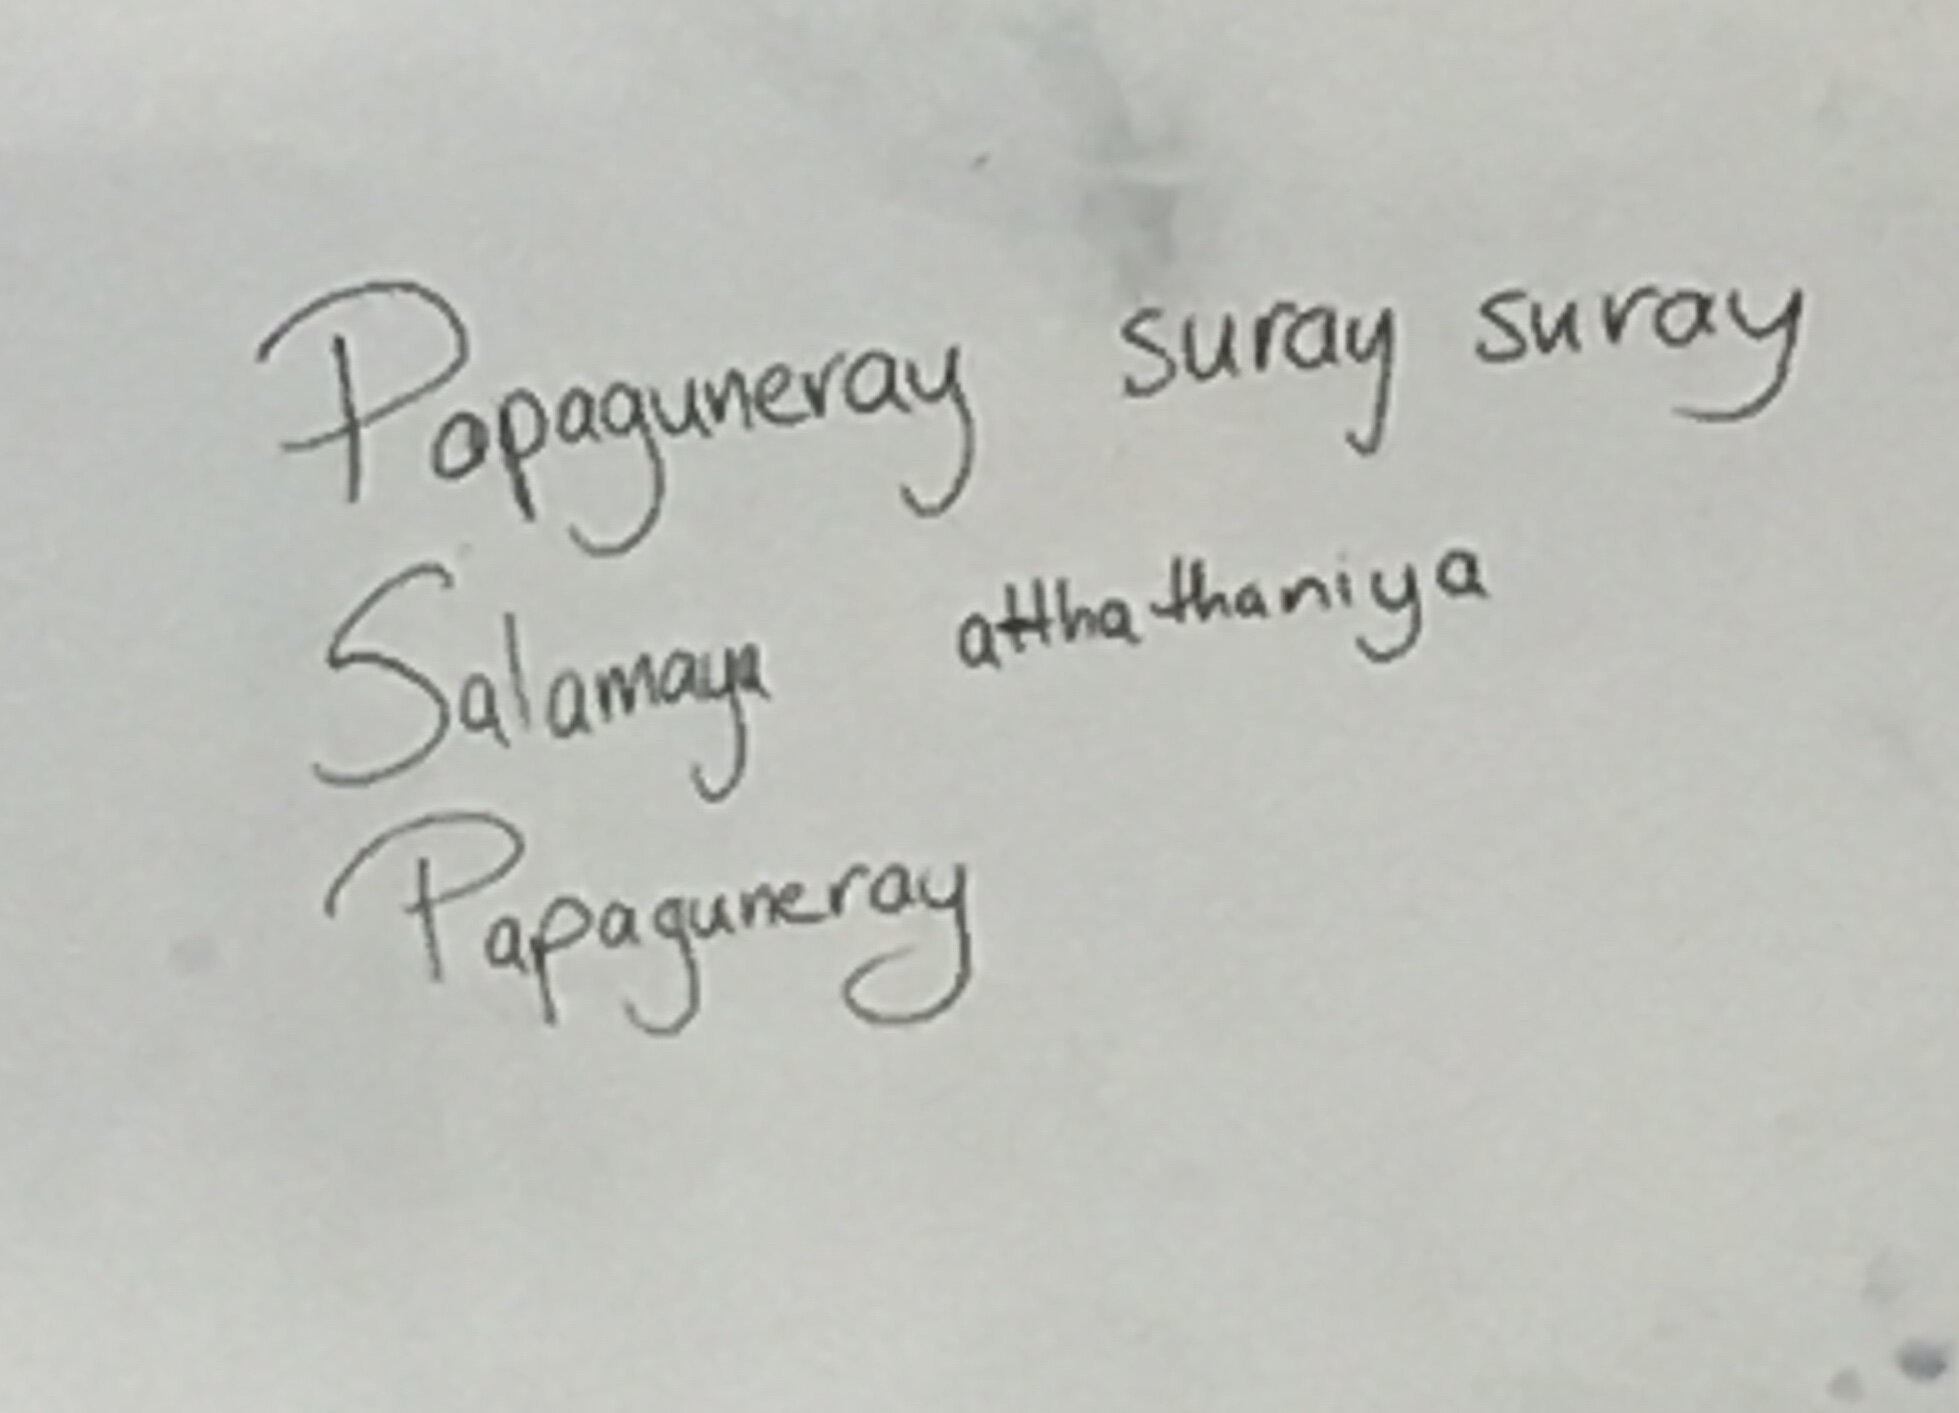 Papaguneray suray suray
Salamaya aththathaniya
Papaguneray